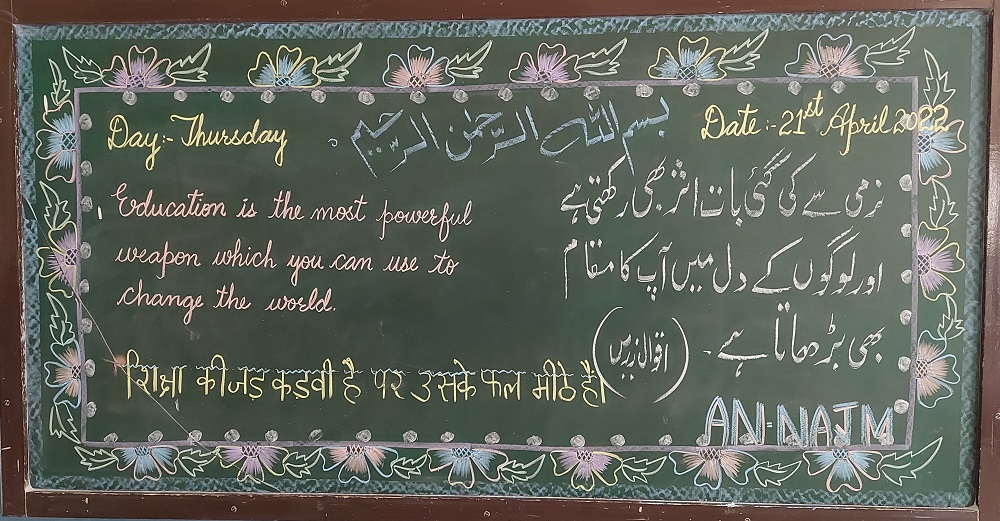 Day:- Thursday
بسم اللہ الرحمٰن الرحیم
Date:- 21st April 2022
Education is the most powerful
weapon which you can use to
change the world.
نرمی سے کی گئی بات اثر بھی رکھتی ہے
اور لوگوں کے دل میں آپ کا مقام
بھی بڑھاتا ہے۔
(اقوال زریں)
शिक्षा की जड़ कड़वी है पर उसके फल मीठे हैं।
AN-NAJM